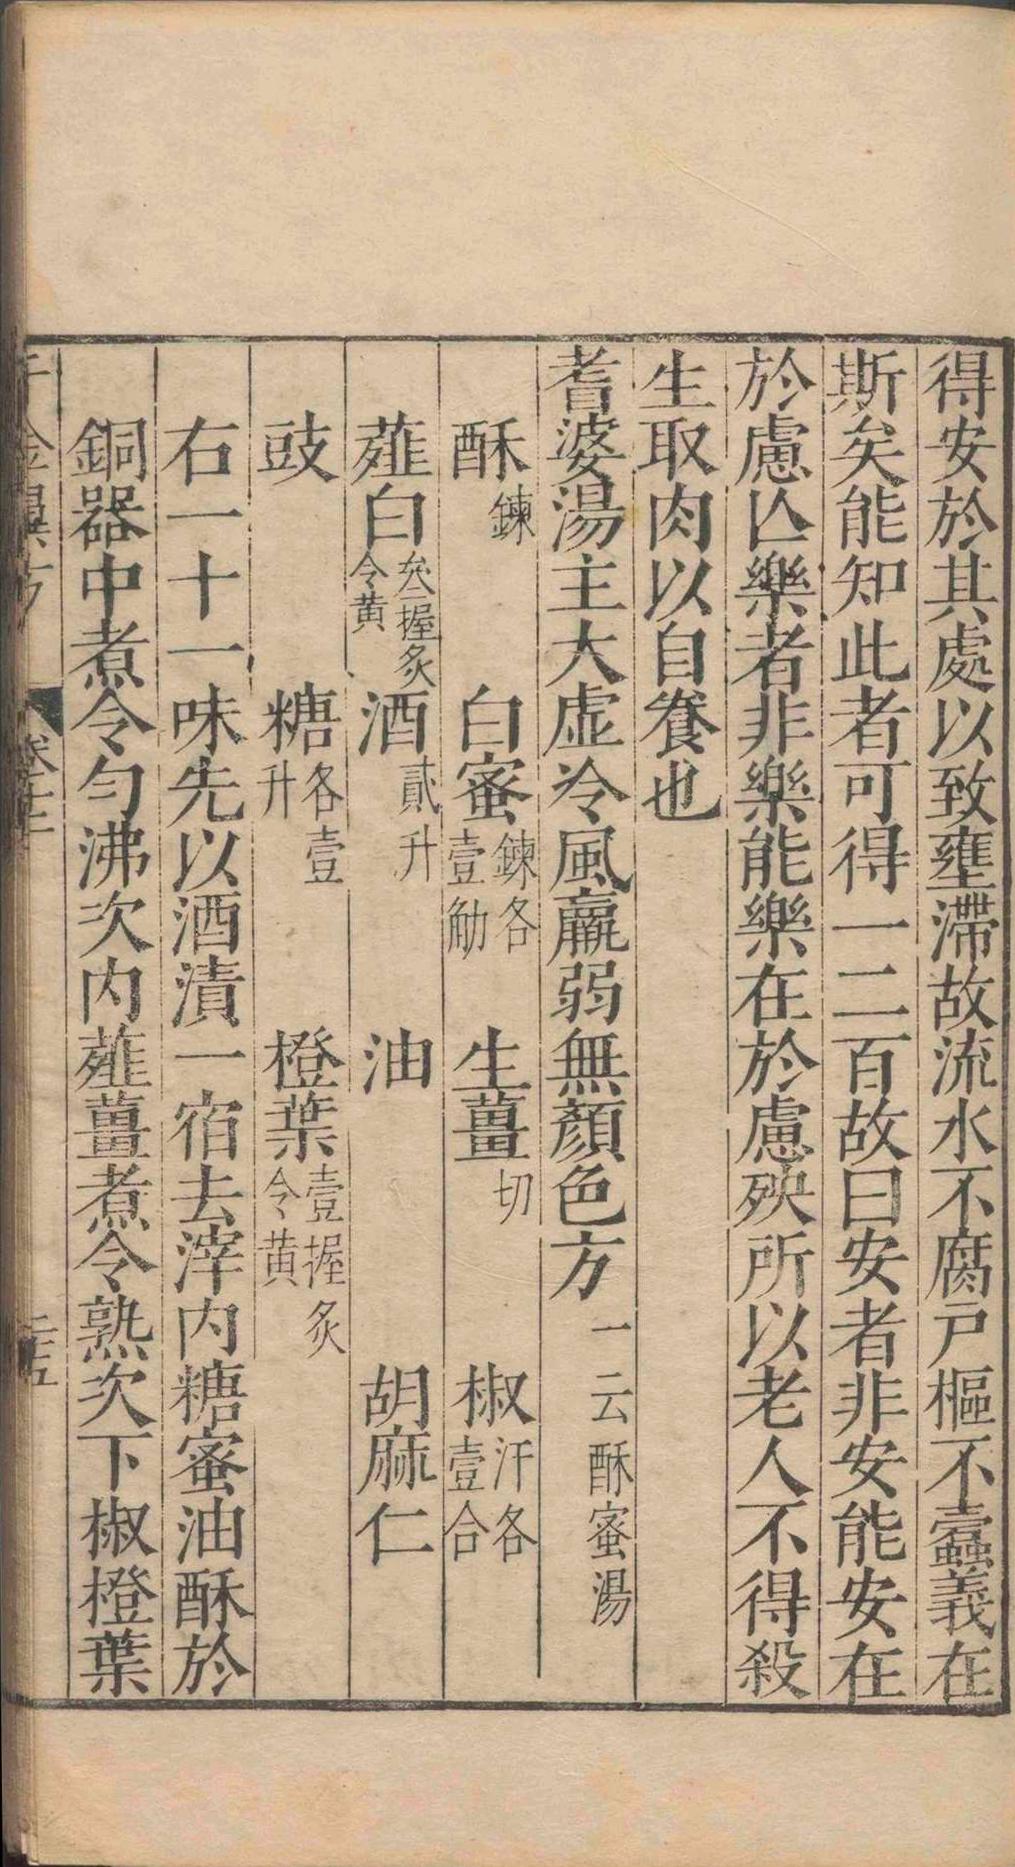 得安於其處以致壅滯故流水不腐戸樞不蠹義在
斯矣能知此者可得一二百故曰安者非安能安在
於慮亾樂者非樂能樂在於慮殃所以老人不得殺
生取肉以自養也
耆婆湯主大虛冷風羸弱無顏色方一云酥蜜湯
酥鍊 白蜜鍊各壹觔 生薑切 椒汗各壹合
薤白叁握炙令黄 酒貳升 油 胡麻仁
豉 糖各壹升 橙葉壹握炙令黄
右一十一味先以酒漬一宿去滓内糖蜜油酥於
銅器中煮令勻沸次内薤薑煮令熟次下椒橙葉
千金翼方 卷十二 二十五